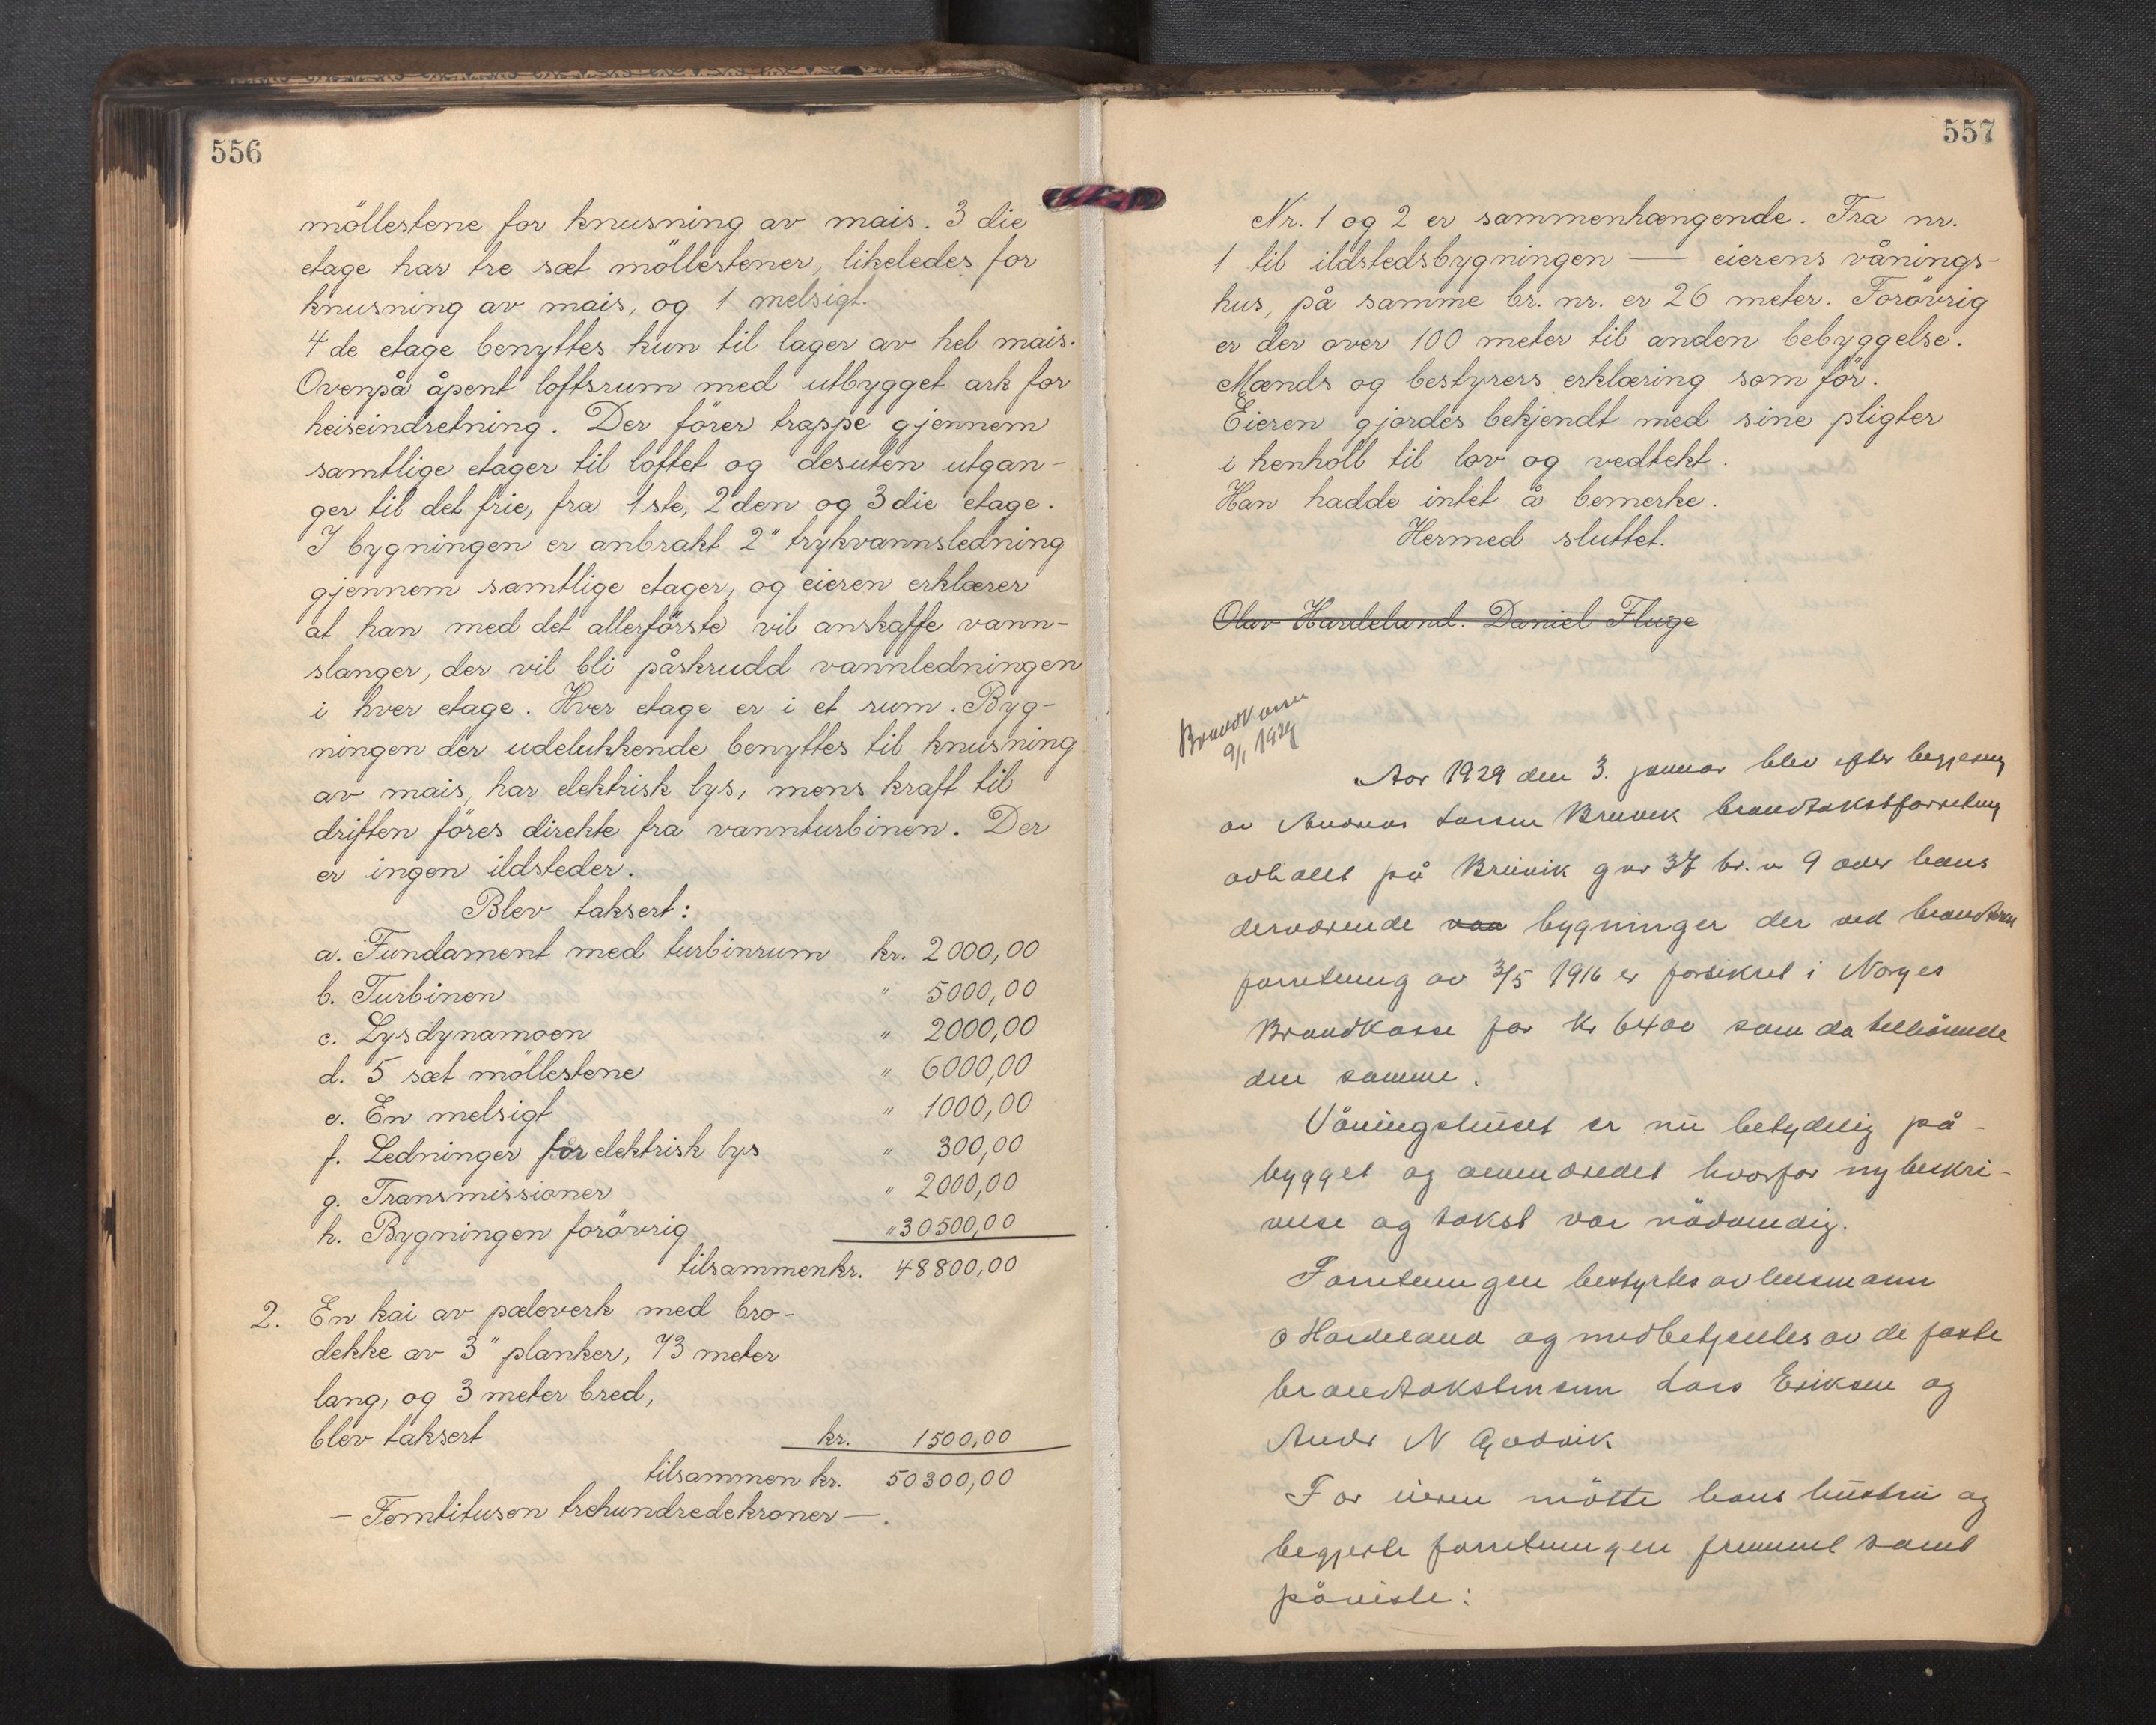 556
möllestene for knusning av mais. 3 die
etage har tre sæt möllestener, likeledes for
knusning av mais, og 1 melsigt.
4 de etage benyttes kun til lager av hel mais.
Ovenpå åpent loftsrum med utbygget ark for
heiseindretning. Der förer trappe gjennem
samtlige etager til loftet og desuten utgan-
ger til det frie, fra 1ste, 2den og 3die etage.
I bygningen er anbrakt 2" trykvannsledning
gjennem samtlige etager, og eieren erklærer
at han med det allerförste vil anskaffe vann-
slanger, der vil bli påskrudd vannledningen
i hver etage. Hver etage er i et rum. Byg-
ningen der udelukkende benyttes til knusning
av mais, har elektrisk lys, mens kraft til
driften föres direkte fra vannturbinen. Der
er ingen ildsteder.
Blev taksert:
a. Fundament med turbinrum kr. 2000,00
b. Turbinen " 5000,00
c. Lysdynamoen " 2000,00
d. 5 sæt möllestene " 6000,00
e. En melsigt " 1000,00
f. Ledninger for elektrisk lys " 300,00
g. Transmissioner " 2000,00
h. Bygningen forövrig " 30500,00
tilsammen kr. 48800,00
2. En kai av pæleverk med bro-
dekke av 3" planker, 73 meter
lang, og 3 meter bred,
blev taksert kr. 1500,00
tilsammen kr. 50300,00
- Femtitusen trehundredekroner -.
557
Nr. 1 og 2 er sammenhængende. Fra nr.
1 til ildstedsbygningen — eierens vånings-
hus, på samme br. nr. er 26 meter. Forövrig
er der over 100 meter til anden bebyggelse.
Mænds og bestyrers erklæring som för.
Eieren gjordes bekjendt med sine pligter
i henholl til lov og vedtekt.
Han hadde intet å bemerke.
Hermed sluttet.
Olav Hardeland. Daniel Fluge
Brandkassen
9/1 1929
Aar 1929 den 3. januar blev efter begjæring
av Andreas Larsen Bruvik brandtakstforretning
avholdt på Bruvik gnr 37 br. n 9 over hans
derværende vaa bygninger der ved brandtakst
forretning av 3/5 1916 er forsikret i Norges
Brandkasse for kr 6400 som da tilhörende
den samme.
Våningshuset er nu betydelig på-
bygget og omendredet hvorfor ny beskri-
velse og takst var nödvendig.
Forretningen bestyrtes av lensmann
O Hardeland og medbetjentes av de faste
brandtakstmenn Lars Eriksen og
Andr N Gjödvik
For eieren mötte hans hustru og
begjærte forretningen fremmet samt
påviste: